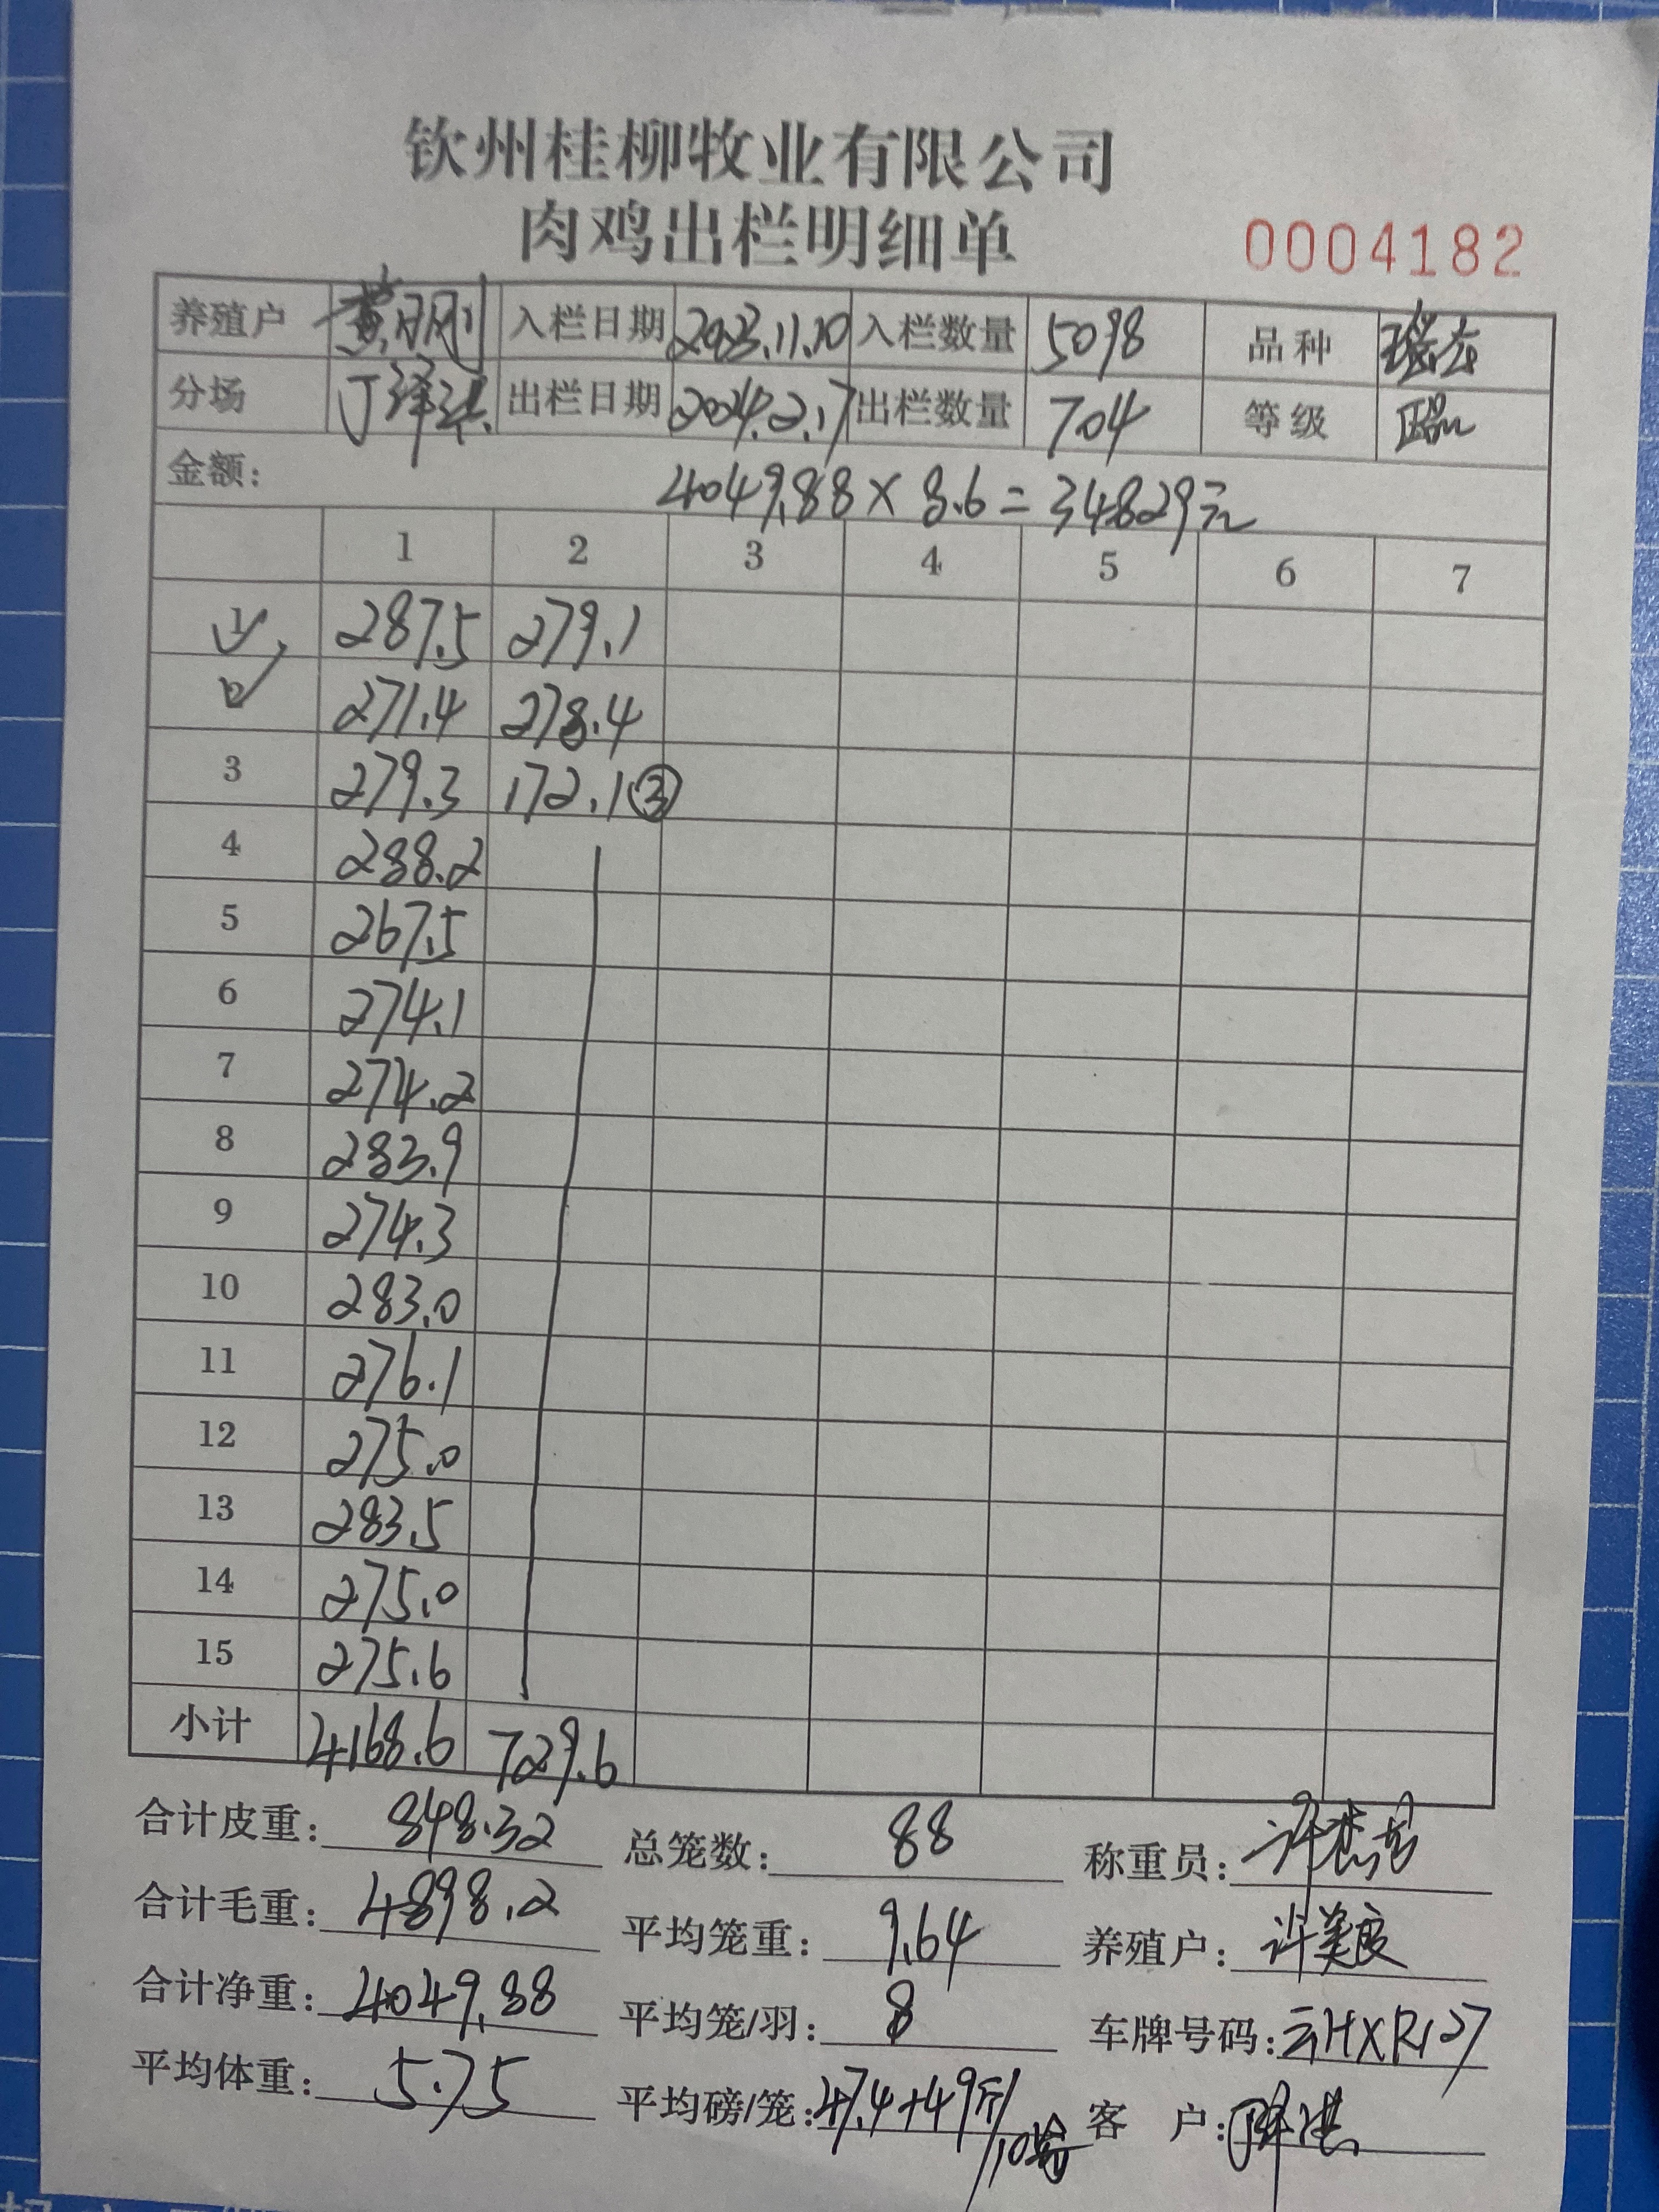 钦州桂柳牧业有限公司
肉鸡出栏明细单 0004182
养殖户 黄 刚 入栏日期 2023.11.10 入栏数量 5098 品种 瑶
分场 丁泽洪 出栏日期 2024.2.17 出栏数量 704 等级
金额: 4049.88×8.6=34829元
1 2 3 4 5 6 7
1 287.5 279.1
2 271.4 278.4
3 279.3 172.1③
4 288.2
5 267.5
6 274.1
7 274.2
8 283.9
9 274.3
10 283.0
11 276.1
12 275.0
13 283.5
14 275.0
15 275.6
小计 4168.6 729.6
合计皮重: 848.32 总笼数: 88 称重员: 许
合计毛重: 4898.2 平均笼重: 9.64 养殖户: 许美
合计净重: 4049.88 平均笼/羽: 8 车牌号码: 云HXR127
平均体重: 5.75 平均磅/笼: 47.4+49斤/10笼 客 户: